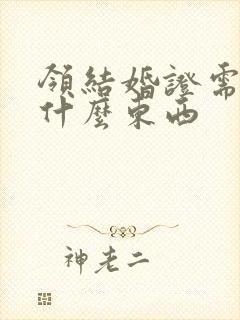 領結婚證需
什麼東西
神老二